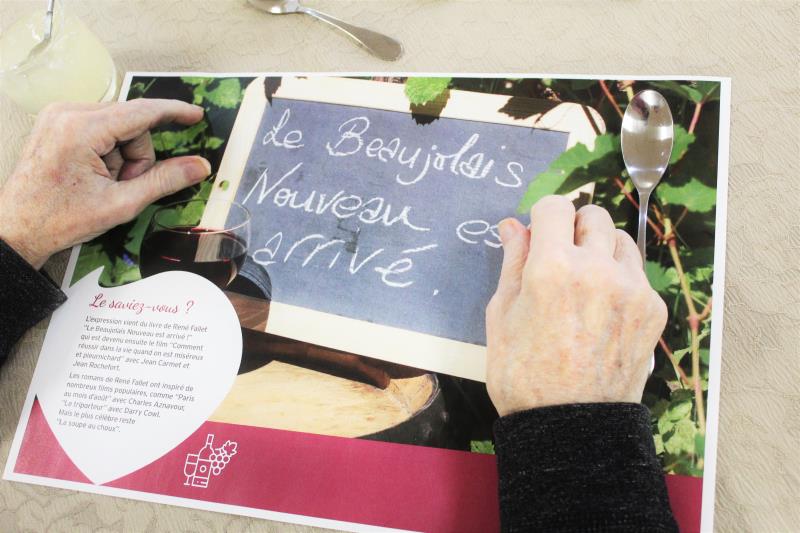 Le Beaujolais
Nouveau es
arrivé.
Le saviez-vous ?
L'expression vient du livre de René Fallet
"Le Beaujolais Nouveau est arrivé !"
qui est devenu ensuite le film "Comment
réussir dans la vie quand on est miséreux
et pleurnichard" avec Jean Carmet et
Jean Rochefort.
Les romans de René Fallet ont inspiré de
nombreux films populaires, comme "Paris
au mois d'août" avec Charles Aznavour,
"Le triporteur" avec Darry Cowl.
Mais le plus célèbre reste
"La soupe au choux".